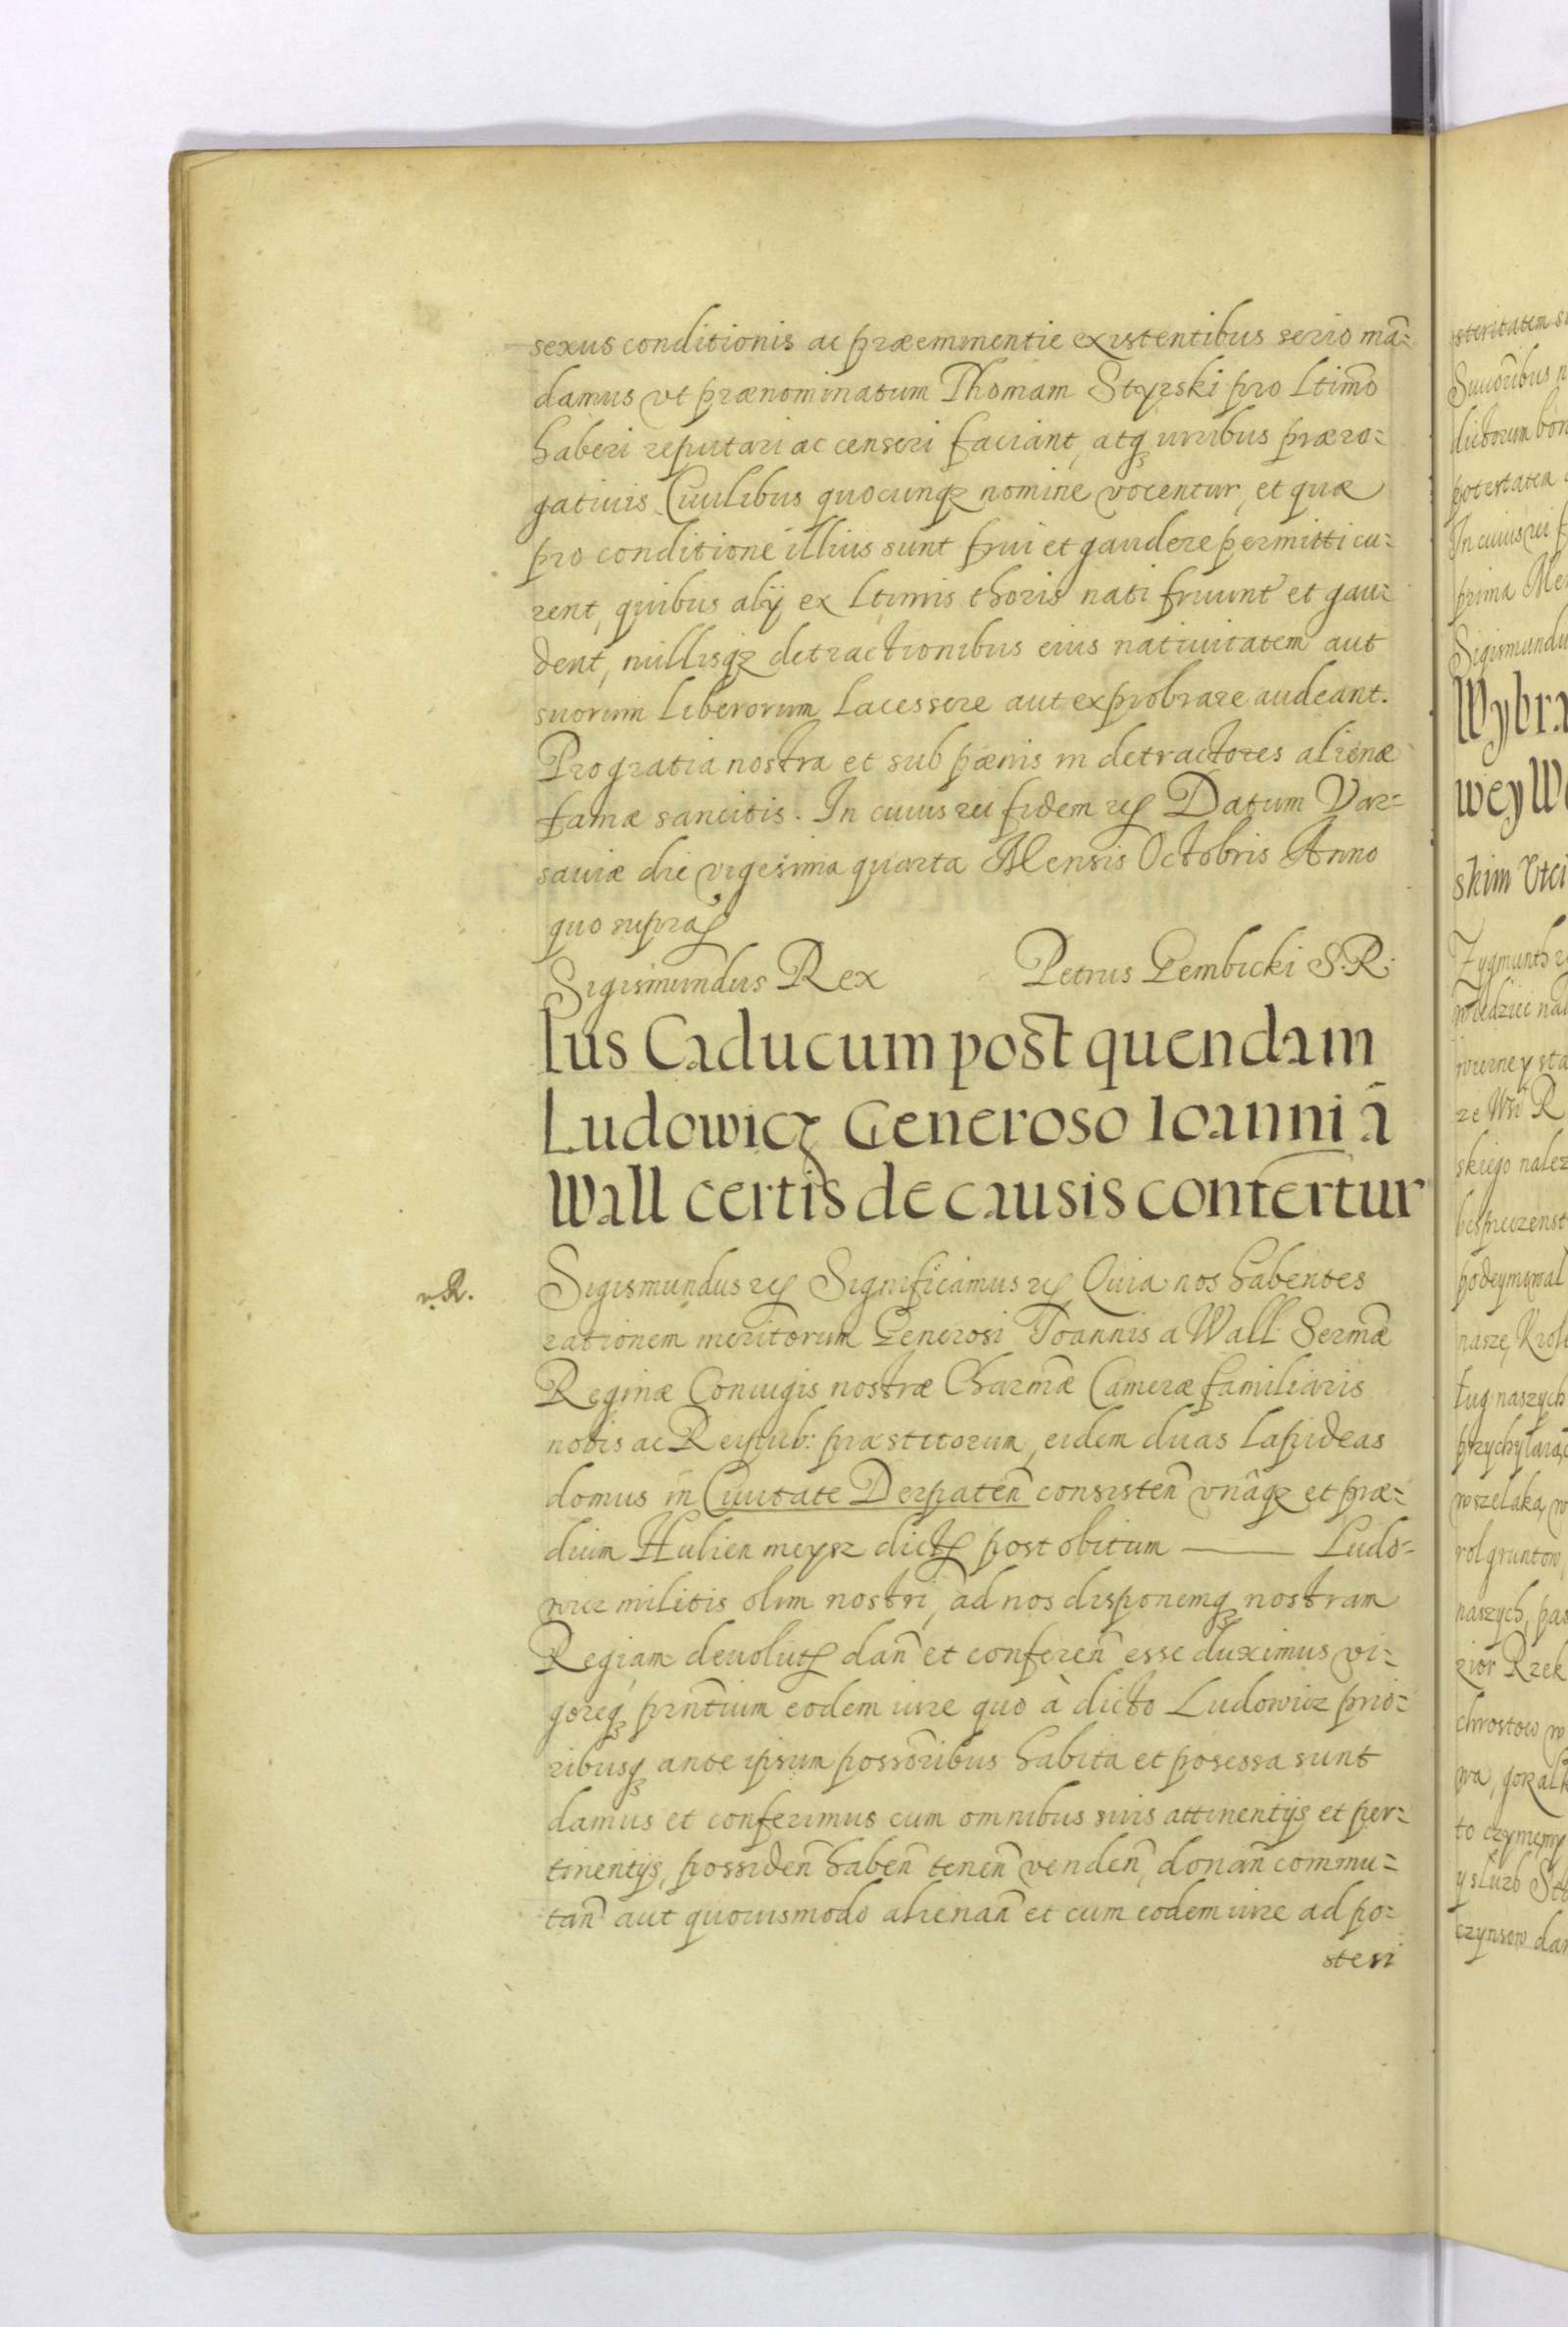 sexus conditionis ac præeminentie existentibus serio mã=
damus vt prænominatum Thomam Styrski pro Ltimõ
haberi reputari ac censeri faciant, atq3 iuribus præro=
gatiuis Ciuilibus quocunq3 nomine vocentur, et quæ
pro conditione illius sunt frui et gaudere permitti cu=
rent, quibus alij ex Ltimis thoris nati fruunt et gau=
dent, nullisq3 detractionibus eius natiuitatem aut
suorum Liberorum Lacessere aut exprobrare audeant.
Pro gratia nostra et sub pœnis in detractores alienæ
famæ sancitis. In cuius rei fidem etc Datum Var=
sauiæ die vigesima quarta Mensis Octobris Anno
quo supra
Sigismundus Rex Petrus Gembicki S.R.
Ius Caducum post quendam
Ludowicz Generoso Ioanni ã
Wall certis de causis confertur
v. R.
Sigismundus etc Significamus etc Quia nos habentes
rationem meritorum Generosi Joannis a Wall Sermæ̃
Reginæ Coniugis nostræ Charmæ̃ Cameræ familiaris
nobis ac Reipub: præstitorum, eidem duas Lapideas
domus in Ciuitate Derpateñ consisteñ vnãq3 et præ=
dium Hulien meysz dict post obitum ——— Ludo=
wicz militis olim nostri, ad nos disponemq3 nostram
Regiam deuolut dañ et confereñ esse duximus vi=
goreq3 prñtium eodem iure quo à dicto Ludowicz prio=
ribusq3 ante ipsum possõribus habita et posessa sunt
damus et conferimus cum omnibus suis attinentijs et per=
tinentijs, possideñ habeñ teneñ vendeñ, donañ commu=
tañ aut quouismodo alienañ et cum eodem iure ad po=
steri
steritatem
dictorum
potestatem
In cuius rei
prima
Wybra
wey
skim
Zygmunth
wiedzieć
skiego
nasze,
naszych
wszelaką
rol gruntow
naszych,
to czymemy
y służb
czynsow